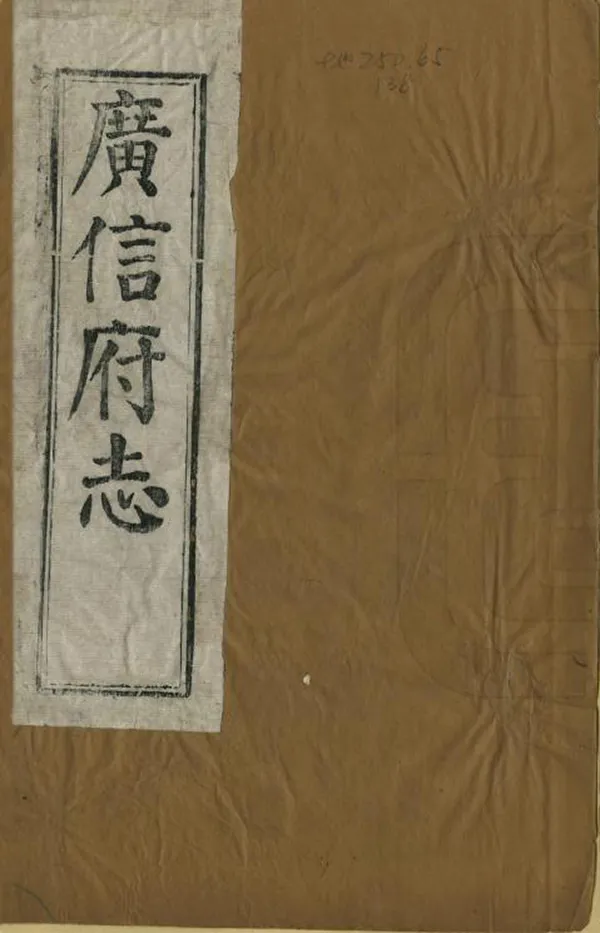 廣信府志
250.65
138